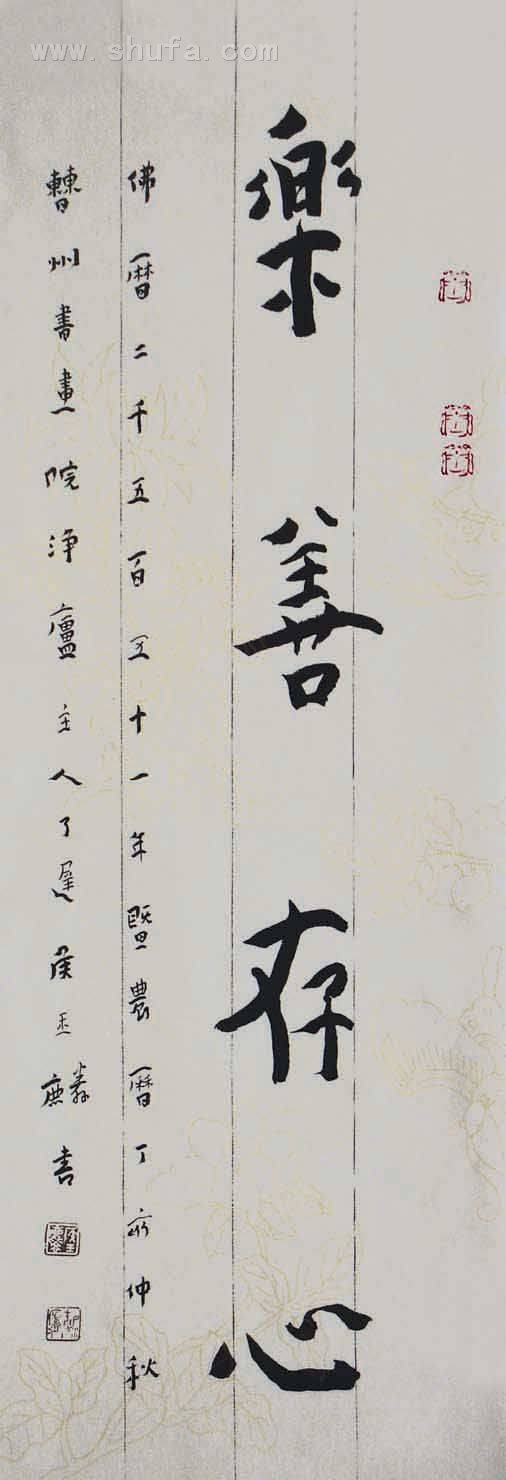 www.shufa.com
樂善存心
佛曆二千五百五十一年暨農曆丁亥仲秋
曹州書畫院淨廬主人了遲侯玉麟書